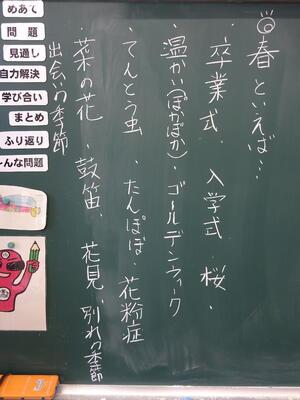 春といえば…
・卒業式・入学式・桜・
・温かい(ぽかぽか)・ゴールデンウィーク
・てんとう虫・たんぽぽ・花粉症
・菜の花・鼓笛・花見・別れの季節
出会いの季節
めあて
問題
見通し
自力解決
学び合い
まとめ
ふり返り
～んな問題